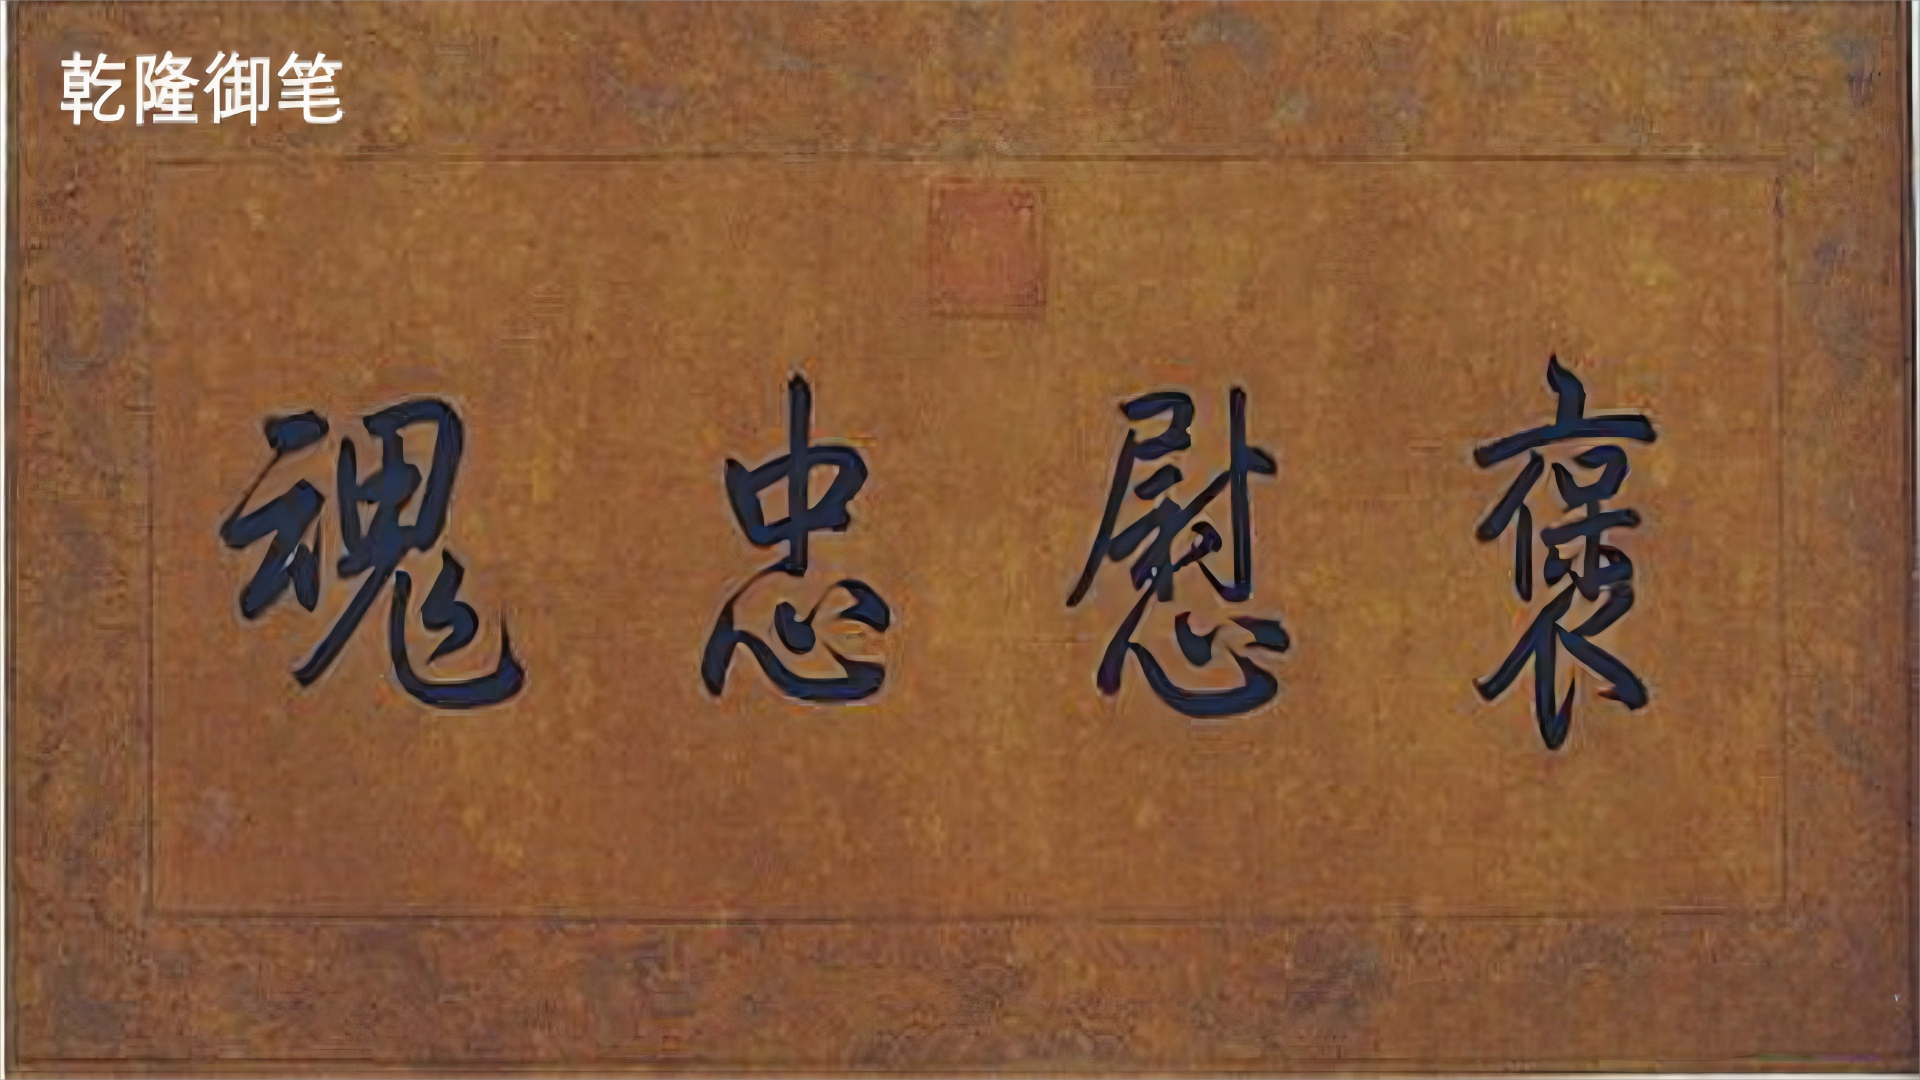 乾隆御笔
褒慰忠魂